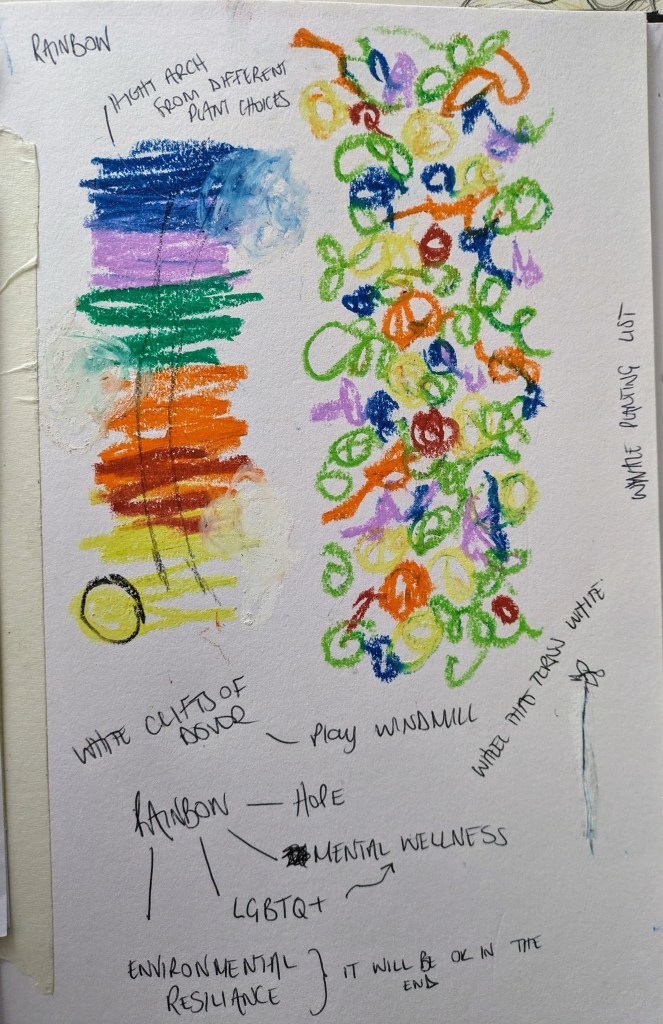 RAINBOW
ARCH
FROM DIFFERENT
PLANT CHOICES
PLANTING LIST
WHEEL THAT TURNS WHITE
WHITE CLIFFS OF
DOVOR
PLAY WINDMILL
RAINBOW — HOPE
MENTAL WELLNESS
LGBTQ+
ENVIRONMENTAL
RESILIANCE
IT WILL BE OK IN THE
END